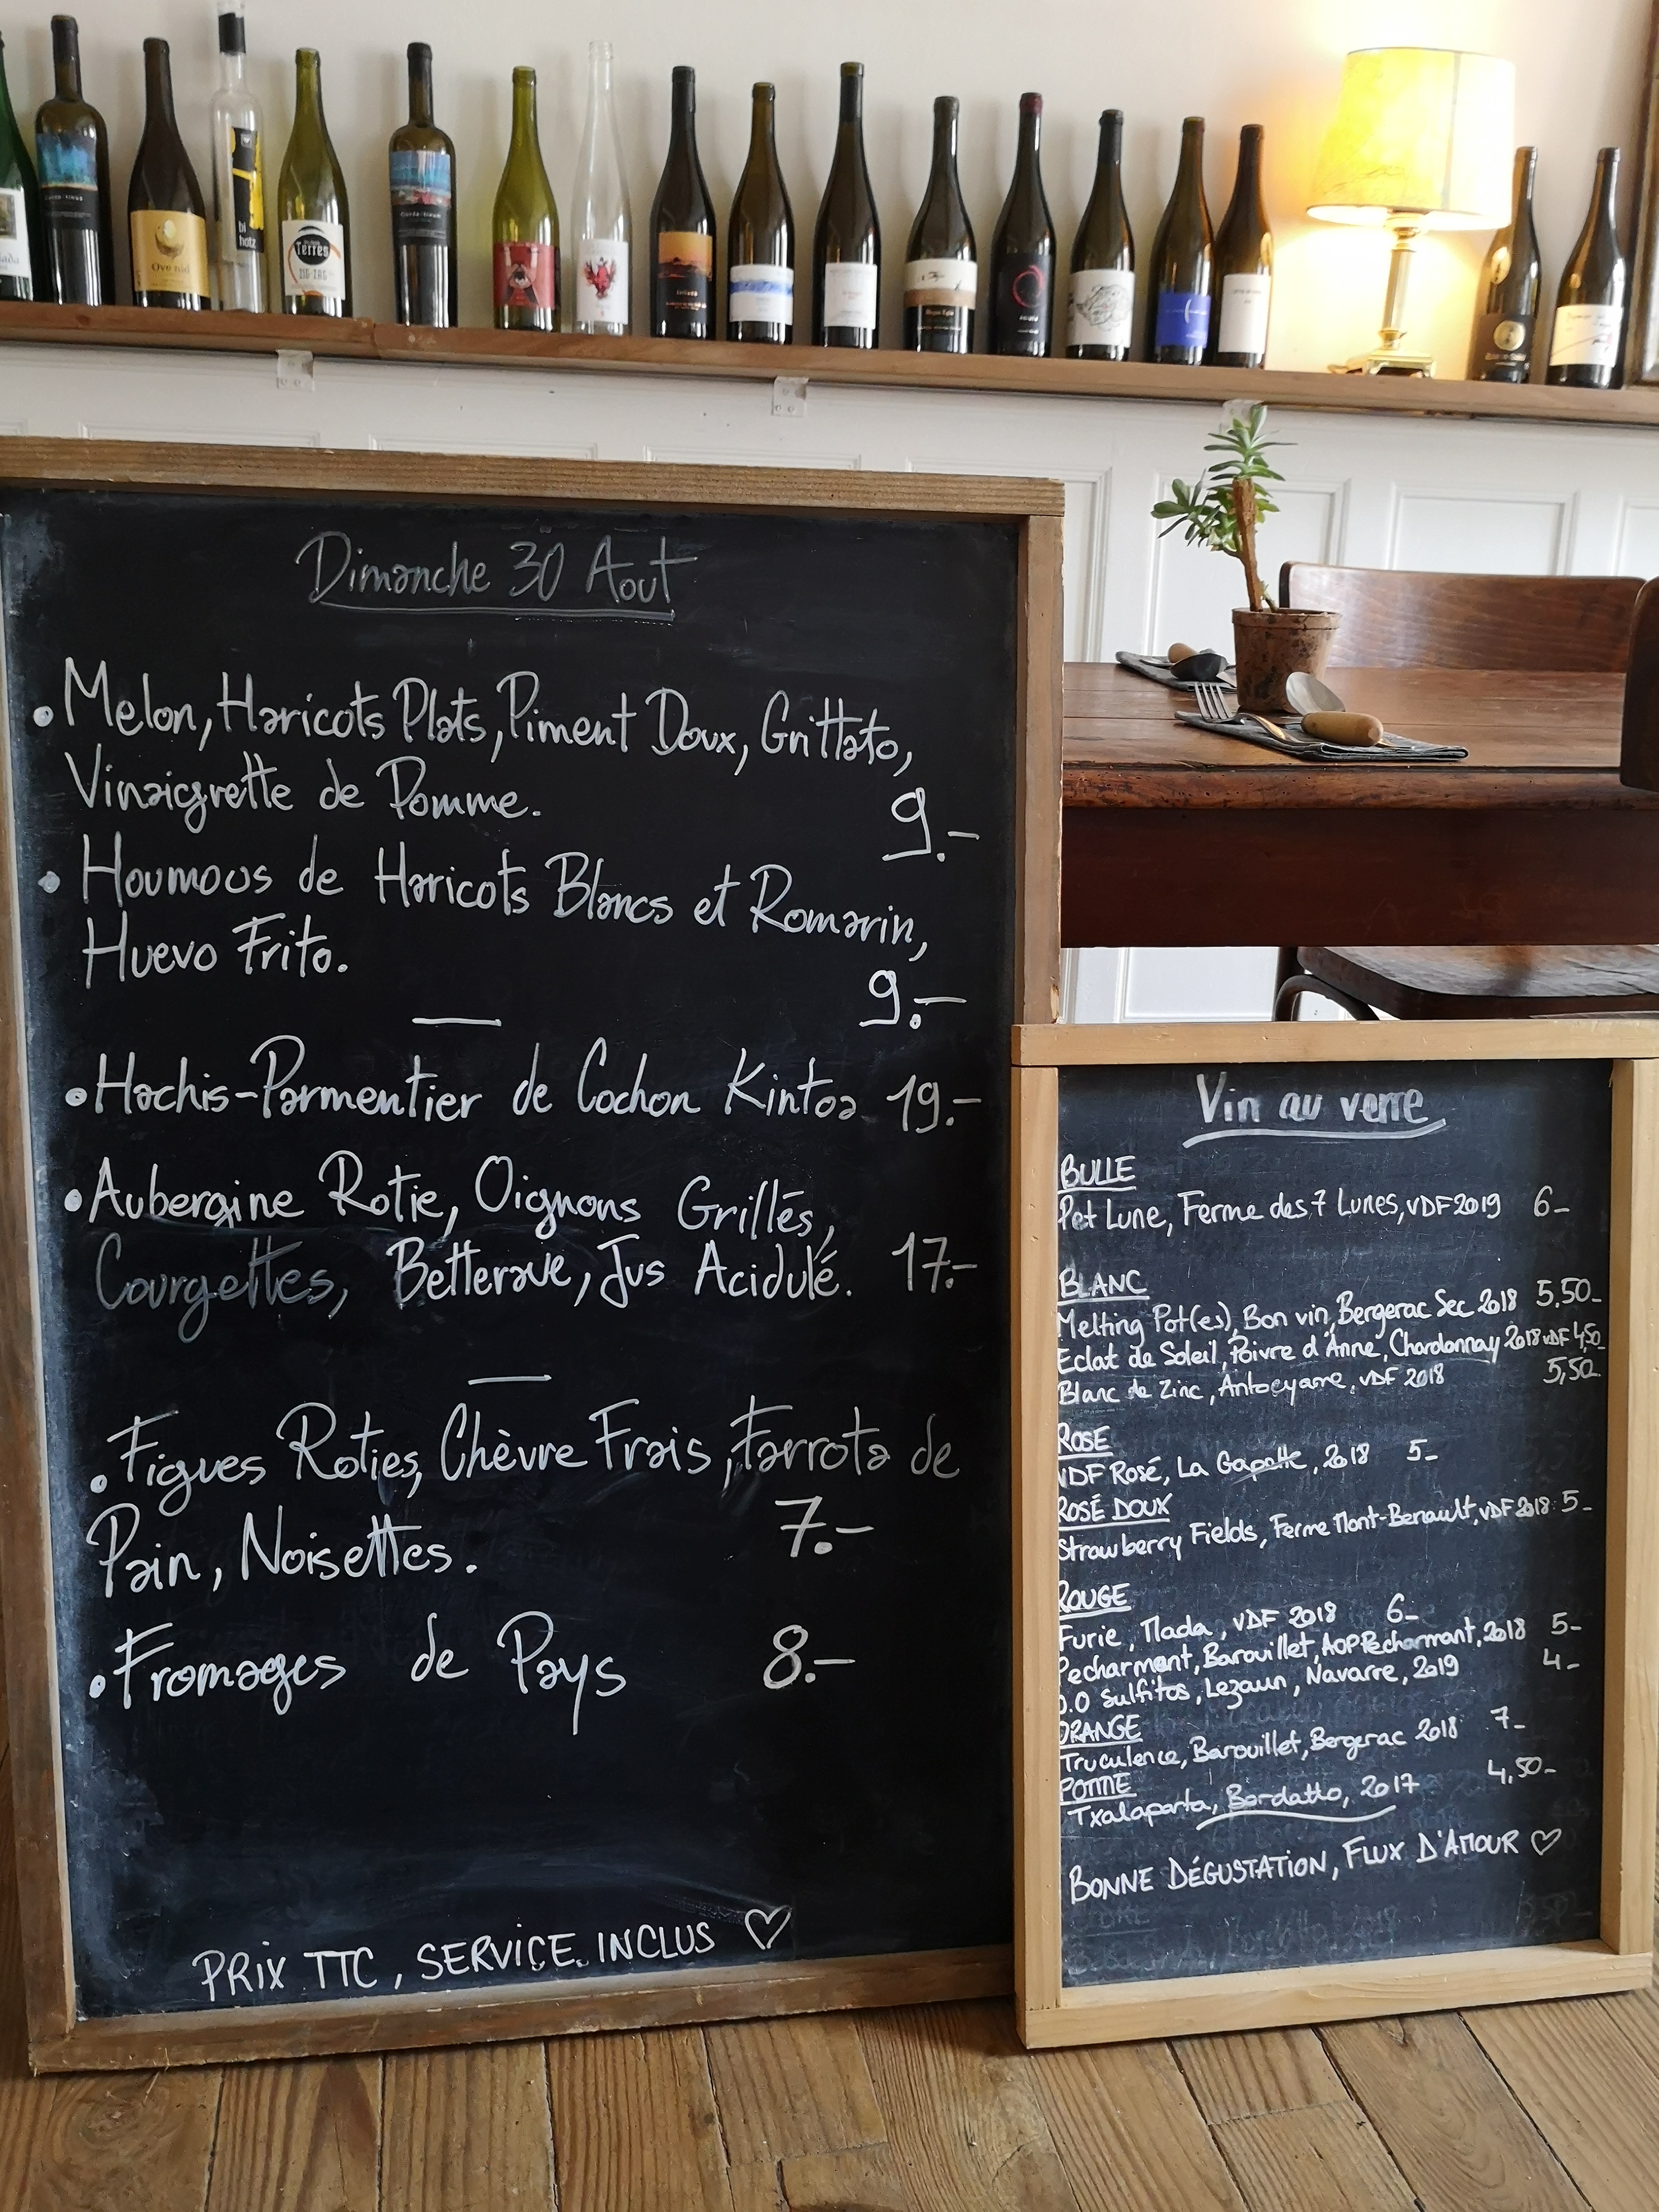 bi
hotz
Terres
ZIG-ZAG
Dimanche 30 Aout
• Melon, Haricots Plats, Piment Doux, Grittato,
Vinaigrette de Pomme.
9.-
• Houmous de Haricots Blancs et Romarin,
Huevo Frito.
9.-
• Hachis-Parmentier de Cochon Kintoa 19.-
• Aubergine Rotie, Oignons Grillés,
Courgettes, Betterave, Jus Acidulé. 17.-
• Figues Roties, Chèvre Frais, Farrota de
Pain, Noisettes. 7.-
• Fromages de Pays 8.-
PRIX TTC, SERVICE INCLUS ♡
Vin au verre
BULLE
Pet Lune, Ferme des 7 Lunes, VDF 2019 6-
BLANC
Melting Pot(es), Bon vin, Bergerac Sec 2018 5,50-
Eclat de Soleil, Poivre d'Anne, Chardonnay 2018 VDF 4,50
Blanc de Zinc, Antocyame, VDF 2018 5,50-
ROSE
VDF Rosé, La Gapette, 2018 5-
ROSÉ DOUX
Strawberry Fields, Ferme Mont-Benault, VDF 2018 5-
ROUGE
Furie, Mada, VDF 2018 6-
Pecharment, Barouillet, AOP Pecharmant, 2018 5-
0.0 Sulfitos, Lezaun, Navarre, 2019 4-
ORANGE
Truculence, Barouillet, Bergerac 2018 7-
POMME
Txalaparta, Bordatto, 2017 4,50-
BONNE DÉGUSTATION, FLUX D'AMOUR ♡